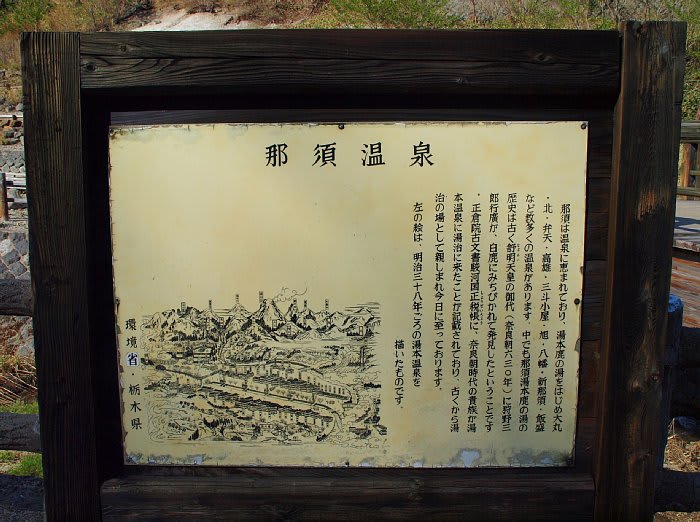 那須温泉
那須は温泉に恵まれており、湯本鹿の湯をはじめ大丸
・北・弁天・高雄・三斗小屋・旭・八幡・新那須・飯盛
など数多くの温泉があります。中でも那須湯本鹿の湯の
歴史は古く舒明天皇の御代（奈良朝六三〇年）に狩野三
郎行廣が、白鹿にみちびかれて発見したということです
・正倉院古文書駿河国正税帳に、奈良朝時代の貴族が湯
本温泉に湯治に来たことが記載されており、古くから湯
治の場として親しまれ今日に至っております。
左の絵は、明治三十八年ごろの湯本温泉を
描いたものです。
環境省・栃木県